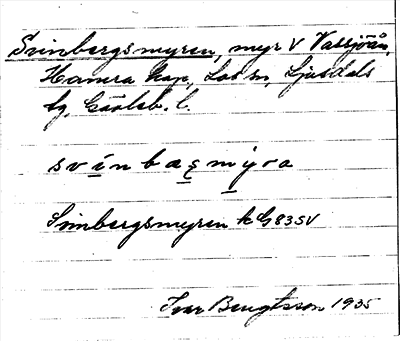 Svinbergsmyren, myr V Valsjöån,
Hamra kap, Los sn, Ljusdals
tg, Gävleb. l.
svinbaεmyra
Svinbergsmyren kG83SV
Ivar Bengtsson 1935